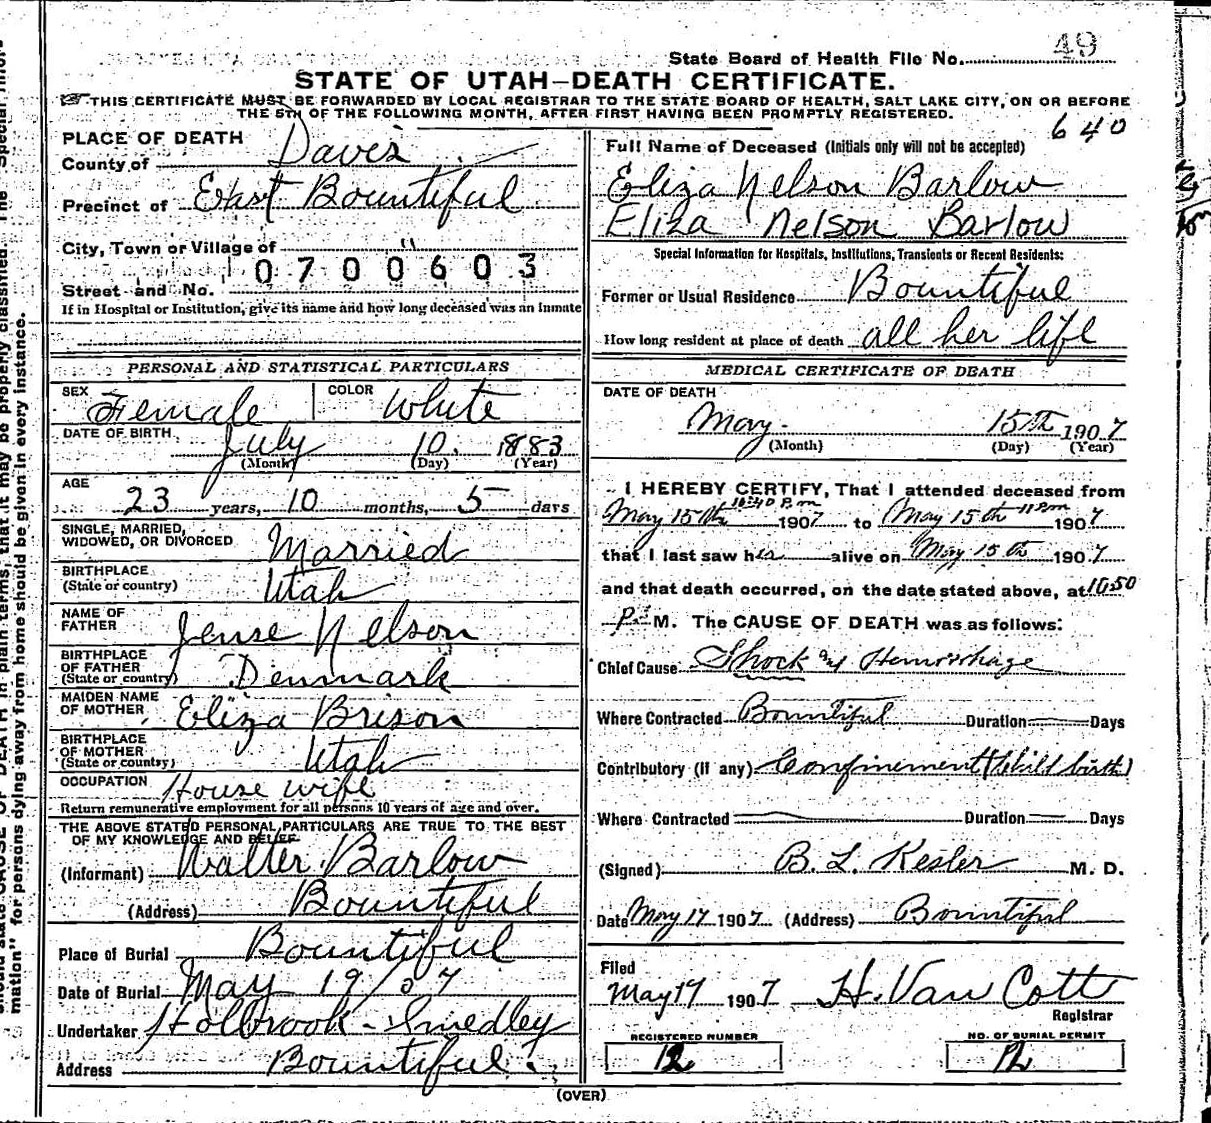 49
State Board of Health File No.
STATE OF UTAH—DEATH CERTIFICATE.
THIS CERTIFICATE MUST BE FORWARDED BY LOCAL REGISTRAR TO THE STATE BOARD OF HEALTH, SALT LAKE CITY, ON OR BEFORE
THE 5TH OF THE FOLLOWING MONTH, AFTER FIRST HAVING BEEN PROMPTLY REGISTERED.
640
PLACE OF DEATH
County of Davis
Precinct of East Bountiful
City, Town or Village of "
0700603
Street and No.
If in Hospital or Institution, give its name and how long deceased was an inmate
PERSONAL AND STATISTICAL PARTICULARS
SEX Female COLOR White
DATE OF BIRTH July 10. 1883
(Month) (Day) (Year)
AGE
23 years, 10 months, 5 days
SINGLE, MARRIED,
WIDOWED, OR DIVORCED Married
BIRTHPLACE
(State or country) Utah
NAME OF
FATHER Jense Nelson
BIRTHPLACE
OF FATHER
(State or country) Denmark
MAIDEN NAME
OF MOTHER Eliza Brison
BIRTHPLACE
OF MOTHER
(State or country) Utah
OCCUPATION House wife
Return remunerative employment for all persons 10 years of age and over.
THE ABOVE STATED PERSONAL PARTICULARS ARE TRUE TO THE BEST
OF MY KNOWLEDGE AND BELIEF
(Informant) Walter Barlow
(Address) Bountiful
Place of Burial Bountiful
Date of Burial May 19/07
Undertaker Holbrook-Smedley
Address Bountiful
Full Name of Deceased (Initials only will not be accepted)
Eliza Nelson Barlow
Eliza Nelson Barlow
Special Information for Hospitals, Institutions, Transients or Recent Residents:
Former or Usual Residence Bountiful
How long resident at place of death all her life
MEDICAL CERTIFICATE OF DEATH
DATE OF DEATH
May 15th 1907
(Month) (Day) (Year)
I HEREBY CERTIFY, That I attended deceased from
May 15th 10:40 P.m 1907 to May 15th 11 Pm 1907
that I last saw her alive on May 15th 1907
and that death occurred, on the date stated above, at 10:50
P. M. The CAUSE OF DEATH was as follows:
Chief Cause Shock and Hemorrhage
Where Contracted Bountiful Duration Days
Contributory (if any) Confinement (Child birth)
Where Contracted Duration Days
(Signed) B. L. Kesler M. D.
Date May 17 1907 (Address) Bountiful
Filed
May 19 1907 H. Van Cott
Registrar
REGISTERED NUMBER NO. OF BURIAL PERMIT
12 12
(OVER)
mation" for persons dying away from home should be given in every instance.